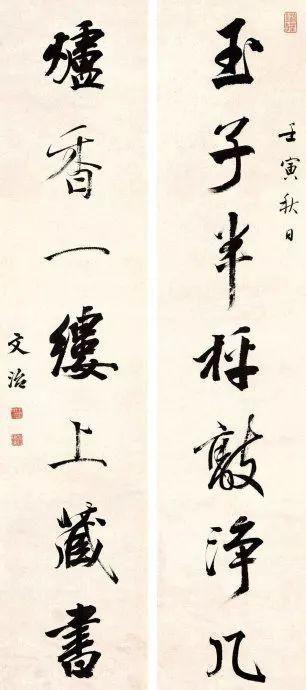 玉子半枰敲淨几
壬寅秋日
爐香一縷上藏書
文治